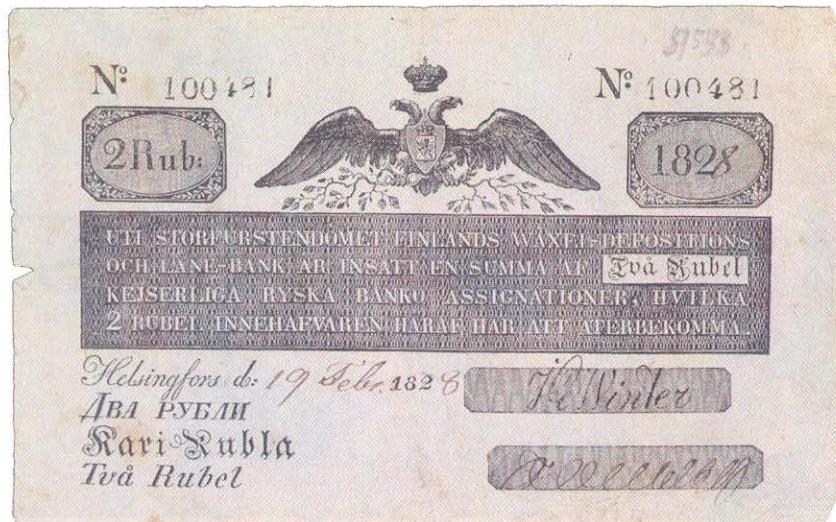 Nº 100481
Nº 100481
2 Rub:
1828
UTI STORFURSTENDÖMET FINLANDS WÄXEL-DEPOSITIONS
OCH LÅNE-BANK ÄR INSATT EN SUMMA AF Två Rubel
KEJSERLIGA RYSKA BANKO ASSIGNATIONER, HVILKA
2 RUBEL INNEHAFVAREN HÄRAF HAR ATT ÅTERBEKOMMA.
Helsingfors d: 19 Febr. 1828
Winter
ДВА РУБЛИ
Kaxi Rubla
Två Rubel